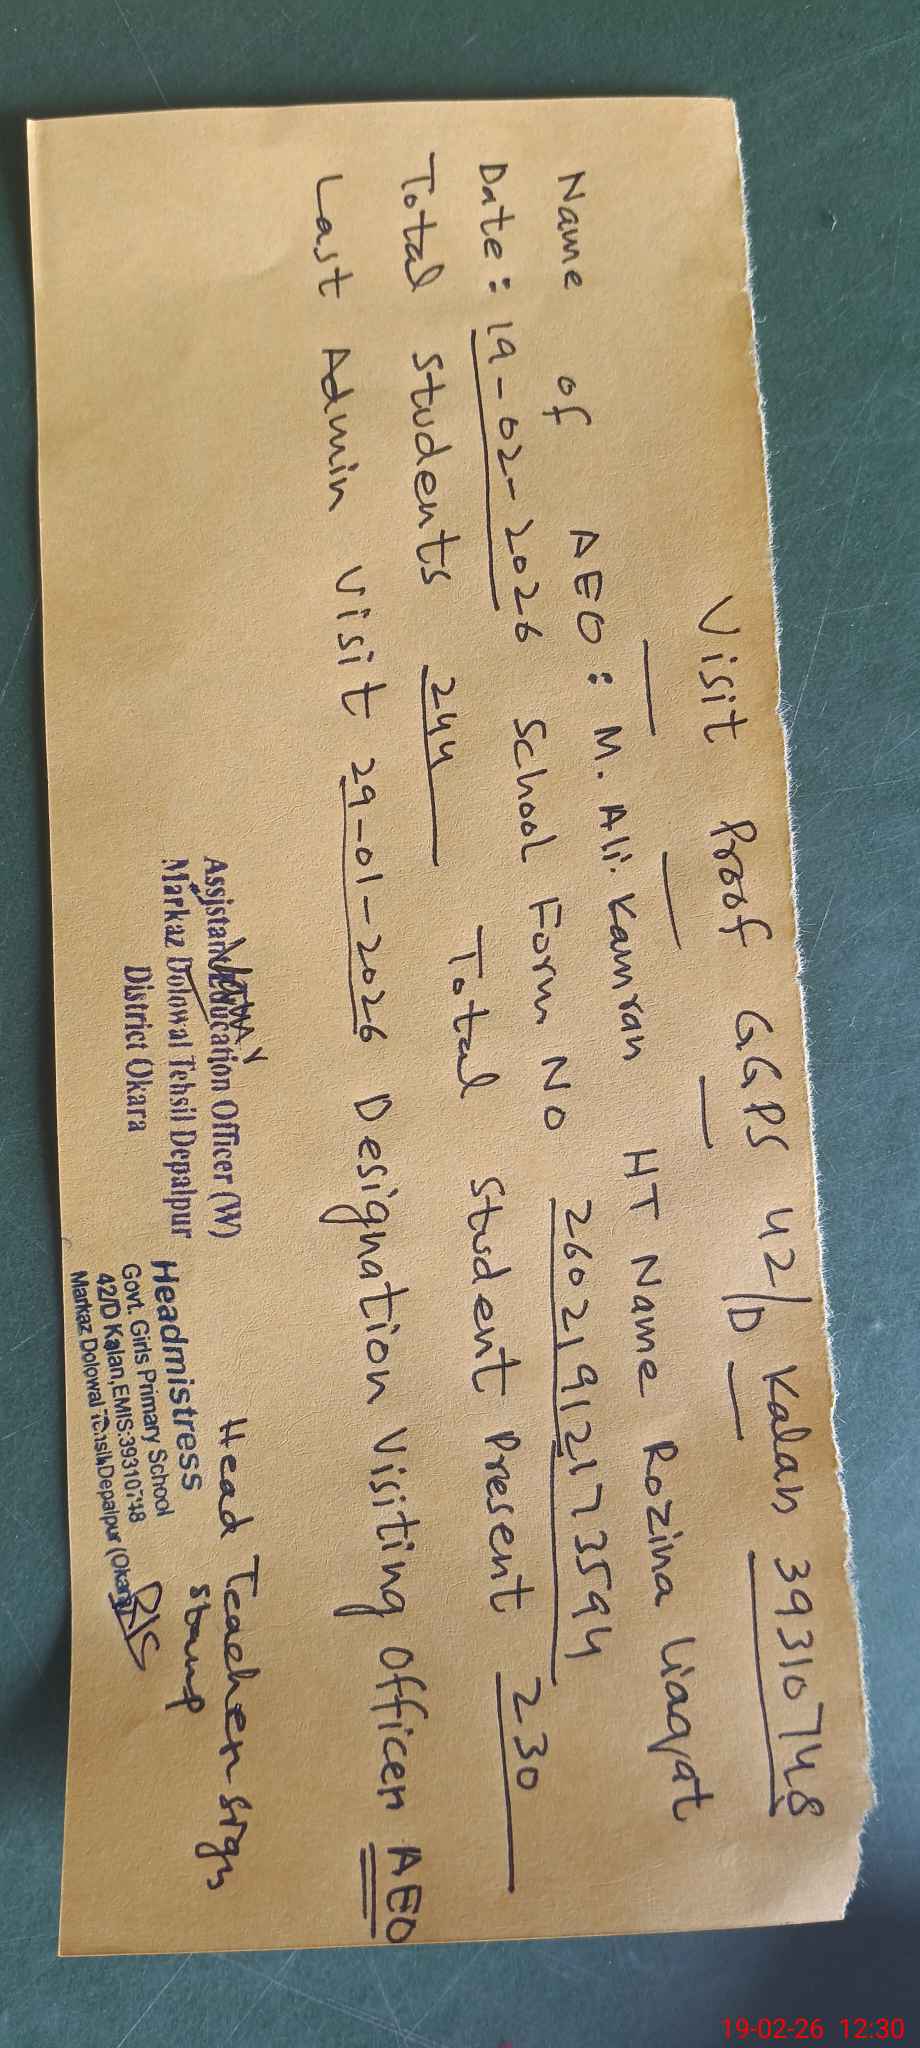 Visit Proof GGPS 42/D Kalan 39310748
Name of AEO: M. Ali Kamran HT Name Rozina Liaqat
Date: 19-02-2026 School Form No 26021912173594
Total Students 244 Total Student Present 230
Last Admin Visit 29-01-2026 Designation Visiting Officer AEO
Head Teacher sign
Stamp
Assistant Education Officer (W)
Markaz Dolowal Tehsil Depalpur
District Okara
Headmistress
Govt. Girls Primary School
42/D Kalan, EMIS:39310748
Markaz Dolowal Tehsil Depalpur (Okara)
19-02-26 12:30